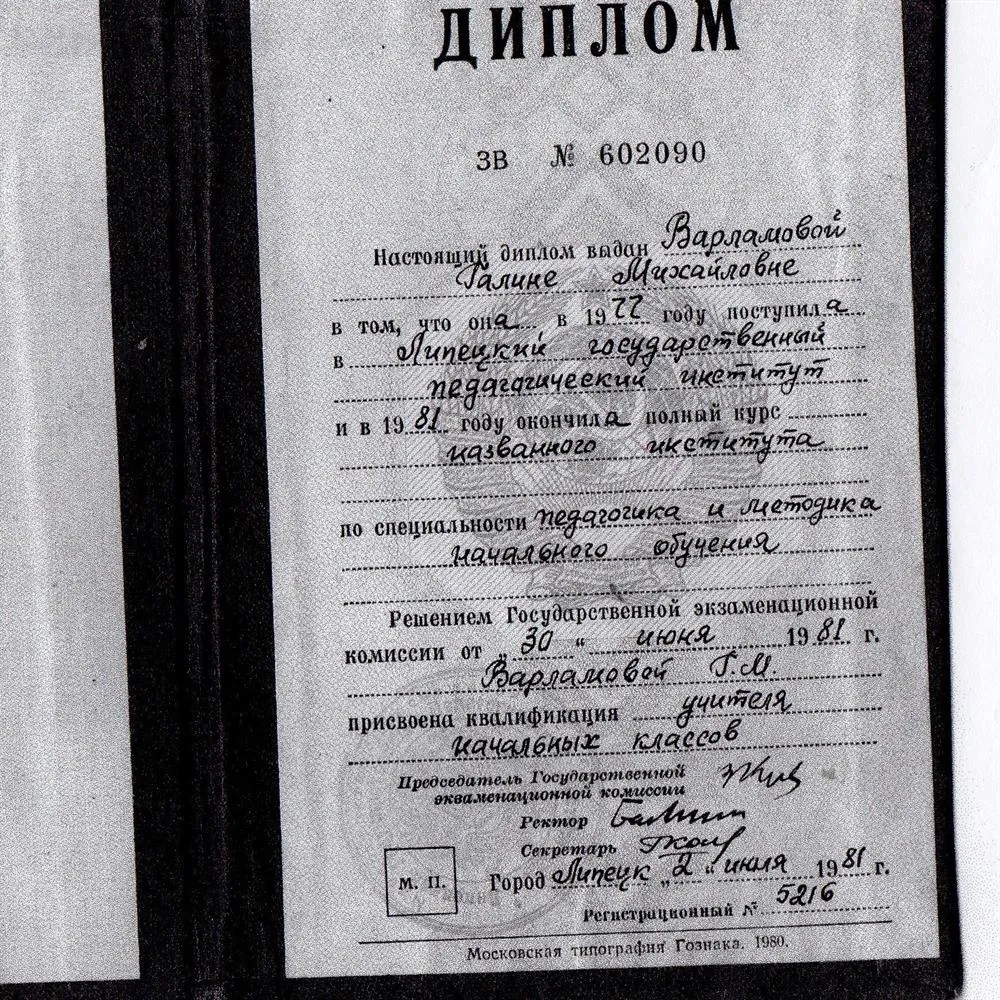 ДИПЛОМ
ЗВ № 602090
Настоящий диплом выдан Варламовой
Галине Михайловне
в том, что она в 1977 году поступила
в Липецкий государственный
педагогический институт
и в 1981 году окончила полный курс
названного института
по специальности педагогика и методика
начального обучения
Решением Государственной экзаменационной
комиссии от „30“ июня 1981 г.
Варламовой Г.М.
присвоена квалификация учителя
начальных классов
Председатель Государственной
экзаменационной комиссии
Ректор
Секретарь
Город Липецк „2“ июля 1981 г.
М. П.
Регистрационный № 5216
Московская типография Гознака. 1980.